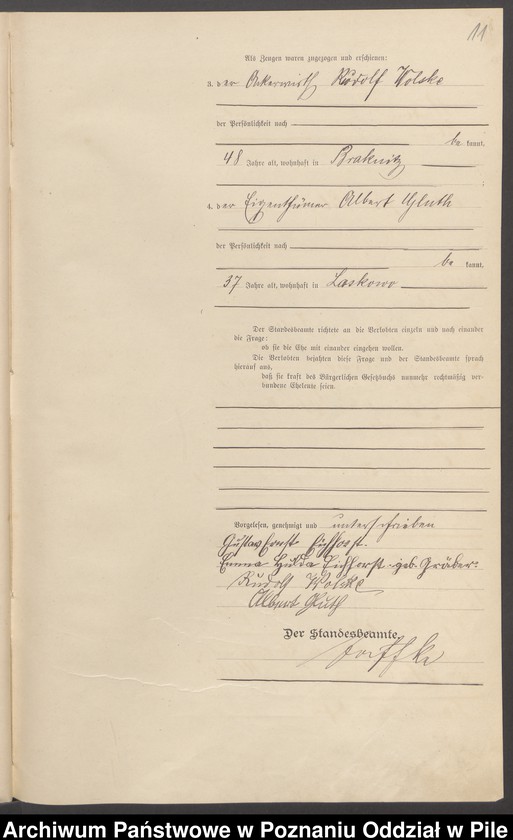 11
Als Zeugen waren zugezogen und erschienen:
3. der Ackerwirth Rudolf Wolske
der Persönlichkeit nach
be kannt,
48 Jahre alt, wohnhaft in Braknitz
4. der Eigenthümer Albert Gluth
der Persönlichkeit nach
be kannt,
37 Jahre alt, wohnhaft in Laskowo
Der Standesbeamte richtete an die Verlobten einzeln und nach einander
die Frage:
ob sie die Ehe mit einander eingehen wollen.
Die Verlobten bejahten diese Frage und der Standesbeamte sprach
hierauf aus,
daß sie kraft des Bürgerlichen Gesetzbuchs nunmehr rechtmäßig ver-
bundene Eheleute seien.
Vorgelesen, genehmigt und unterschrieben
Gustav Ernst Eichhorst.
Emma Hulda Eichhorst geb. Gräber
Rudolf Wolske
Albert Gluth
Der Standesbeamte.
Archiwum Państwowe w Poznaniu Oddział w Pile